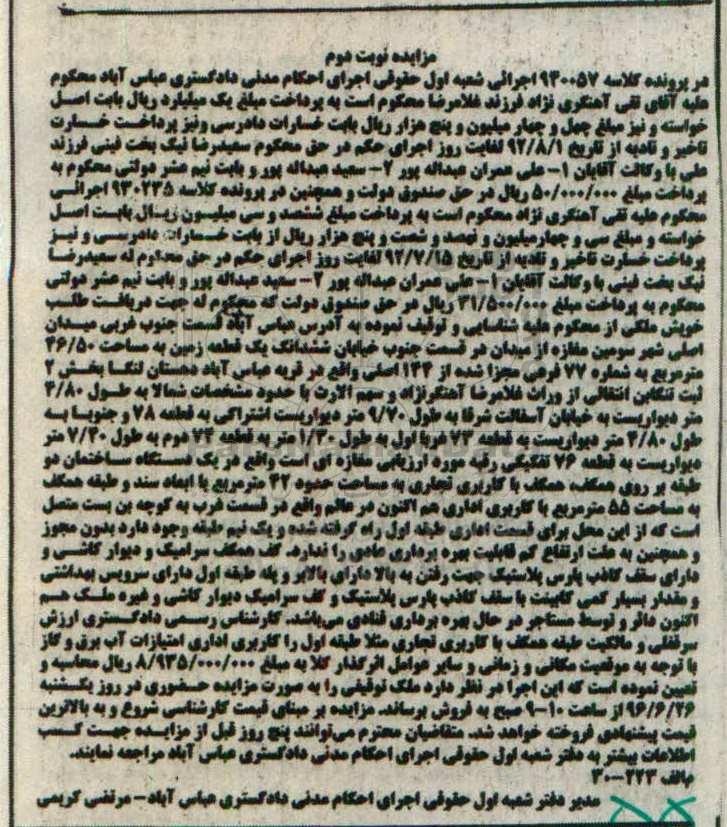 مزایده نوبت دوم
در پرونده کلاسه ۹۳۰۰۵۷ اجرائی شعبه اول حقوقی اجرای احکام مدنی دادگستری عباس آباد محکوم
علیه آقای تقی آهنگری نژاد فرزند غلامرضا محکوم است به پرداخت مبلغ یک میلیارد ریال بابت اصل
خواسته و نیز مبلغ چهل و چهار میلیون و پنج هزار ریال بابت خسارات دادرسی ونیز پرداخت خسارت
تاخیر و تادیه از تاریخ ۹۲/۸/۱ لغایت روز اجرای حکم در حق محکوم سعیدرضا نیک بخت فینی فرزند
علی با وکالت آقایان ۱- علی عمران عبداله پور ۲- سعید عبداله پور و بابت نیم عشر دولتی محکوم به
پرداخت مبلغ ۵۰/۰۰۰/۰۰۰ ریال در حق صندوق دولت و همچنین در پرونده کلاسه ۹۳۰۲۳۵ اجرائی
محکوم علیه تقی آهنگری نژاد محکوم است به پرداخت مبلغ ششصد و سی میلیون ریال بابت اصل
خواسته و مبلغ سی و چهارمیلیون و نهصد و شصت و پنج هزار ریال از بابت خسارات دادرسی و نیز
پرداخت خسارت تاخیر و تادیه از تاریخ ۹۲/۷/۱۵ لغایت روز اجرای حکم در حق محکوم له سعیدرضا
نیک بخت فینی با وکالت آقایان ۱- علی عمران عبداله پور ۲- سعید عبداله پور و بابت نیم عشر دولتی
محکوم به پرداخت مبلغ ۳۱/۵۰۰/۰۰۰ ریال در حق صندوق دولت که محکوم له جهت دریافت طلب
خویش ملکی از محکوم علیه شناسایی و توقیف نموده به آدرس عباس آباد قسمت جنوب غربی میدان
اصلی شهر سومین مغازه از میدان در قسمت جنوب خیابان ششدانگ یک قطعه زمین به مساحت ۴۶/۵۰
مترمربع به شماره ۷۷ فرعی مجزا شده از ۱۴۴ اصلی واقع در قریه عباس آباد دهستان لنگا بخش ۲
ثبت تنکابن انتقالی از وراث غلامرضا آهنگرنژاد و سهم الارث با حدود مشخصات شمالا به طول ۴/۸۰
متر دیواریست به خیابان آسفالت شرقا به طول ۹/۷۰ متر دیواریست اشتراکی به قطعه ۷۸ و جنوبا به
طول ۴/۸۰ متر دیواریست به قطعه ۷۳ غربا اول به طول ۱/۳۰ متر به قطعه ۷۳ دوم به طول ۷/۳۰ متر
دیواریست به قطعه ۷۶ تفکیکی رقبه مورد ارزیابی مغازه ای است واقع در یک دستگاه ساختمان دو
طبقه بر روی همکف، همکف با کاربری تجاری به مساحت حدود ۴۲ مترمربع با ابعاد سند و طبقه همکف
به مساحت ۵۵ مترمربع با کاربری اداری هم اکنون در عالم واقع در قسمت غرب به کوچه بن بست متصل
است که از این محل برای قسمت اداری طبقه اول راه گرفته شده و یک نیم طبقه وجود دارد بدون مجوز
و همچنین به علت ارتفاع کم قابلیت بهره برداری عادی را ندارد. کف همکف سرامیک و دیوار کاشی و
دارای سقف کاذب پارس پلاستیک جهت رفتن به بالا دارای بالابر و پله طبقه اول دارای سرویس بهداشتی
و مقدار بسیار کمی کابینت با سقف کاذب پارس پلاستیک و کف سرامیک دیوار کاشی و غیره ملک هم
اکنون دائر و توسط مستاجر در حال بهره برداری قنادی می‌باشد. کارشناس رسمی دادگستری ارزش
سرقفلی و مالکیت طبقه همکف با کاربری تجاری مثلا طبقه اول را کاربری اداری امتیازات آب برق و گاز
با توجه به موقعیت مکانی و زمانی و سایر عوامل اثرگذار کلا به مبلغ ۸/۹۳۵/۰۰۰/۰۰۰ ریال محاسبه و
تعیین نموده است که این اجرا در نظر دارد ملک توقیفی را به صورت مزایده حضوری در روز یکشنبه
۹۶/۶/۲۶ از ساعت ۱۰-۹ صبح به فروش برساند. مزایده بر مبنای قیمت کارشناسی شروع و به بالاترین
قیمت پیشنهادی فروخته خواهد شد. متقاضیان محترم می‌توانند پنج روز قبل از مزایده جهت کسب
اطلاعات بیشتر به دفتر شعبه اول حقوقی اجرای احکام مدنی دادگستری عباس آباد مراجعه نمایند.
م/الف ۲۲۳-۳۰
مدیر دفتر شعبه اول حقوقی اجرای احکام مدنی دادگستری عباس آباد- مرتضی کریمی